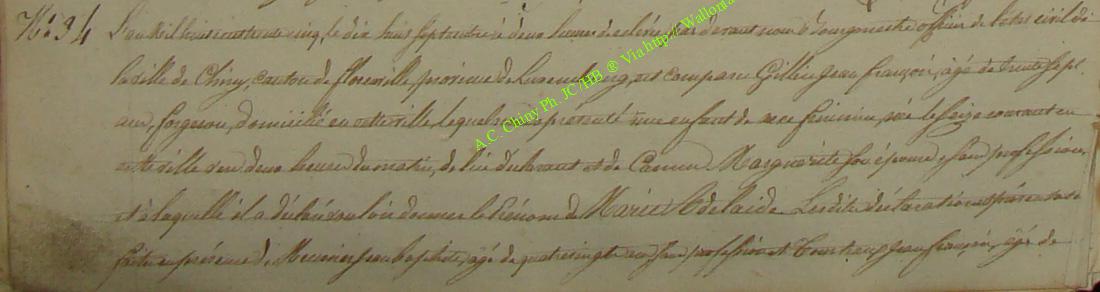 N° 34 L'an mil huit cent trente cinq, le dix huit septembre à deux heures de relevée, par devant nous Bourgmestre officier de l'état civil de
la ville de Chiny, canton de florenville, province de Luxembourg, est comparu Gillin jean françois, âgé de trente sept
ans, forgeron, domicilié en cette ville, lequel nous a présenté une enfant de sexe féminin, née le seize courant en
cette ville vers deux heures du matin, de lui déclarant et de Marguerite son épouse, sans profession,
et à laquelle il a déclaré vouloir donner le Prénom de Marie Adelaïde. Lesdites déclaration et présentation
faites en présence de jean baptiste, âgé de quatre vingts ans, sans profession et jean françois, âgé de
A.C. Chiny Ph. JC/HB ® Via http://Wallonia